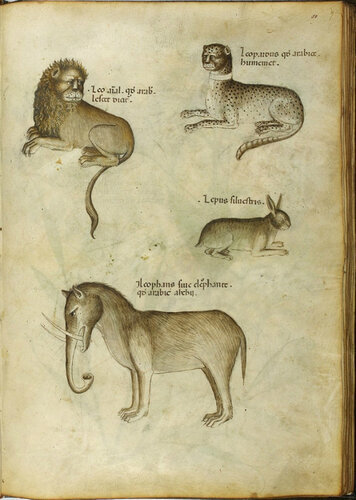 Leo aĩal. qđ arab.
leset dicit.
Leopardus qđ arabice.
humemer.
Lepus siluestris.
Fleophans siue elephante.
qđ arabice alchu.